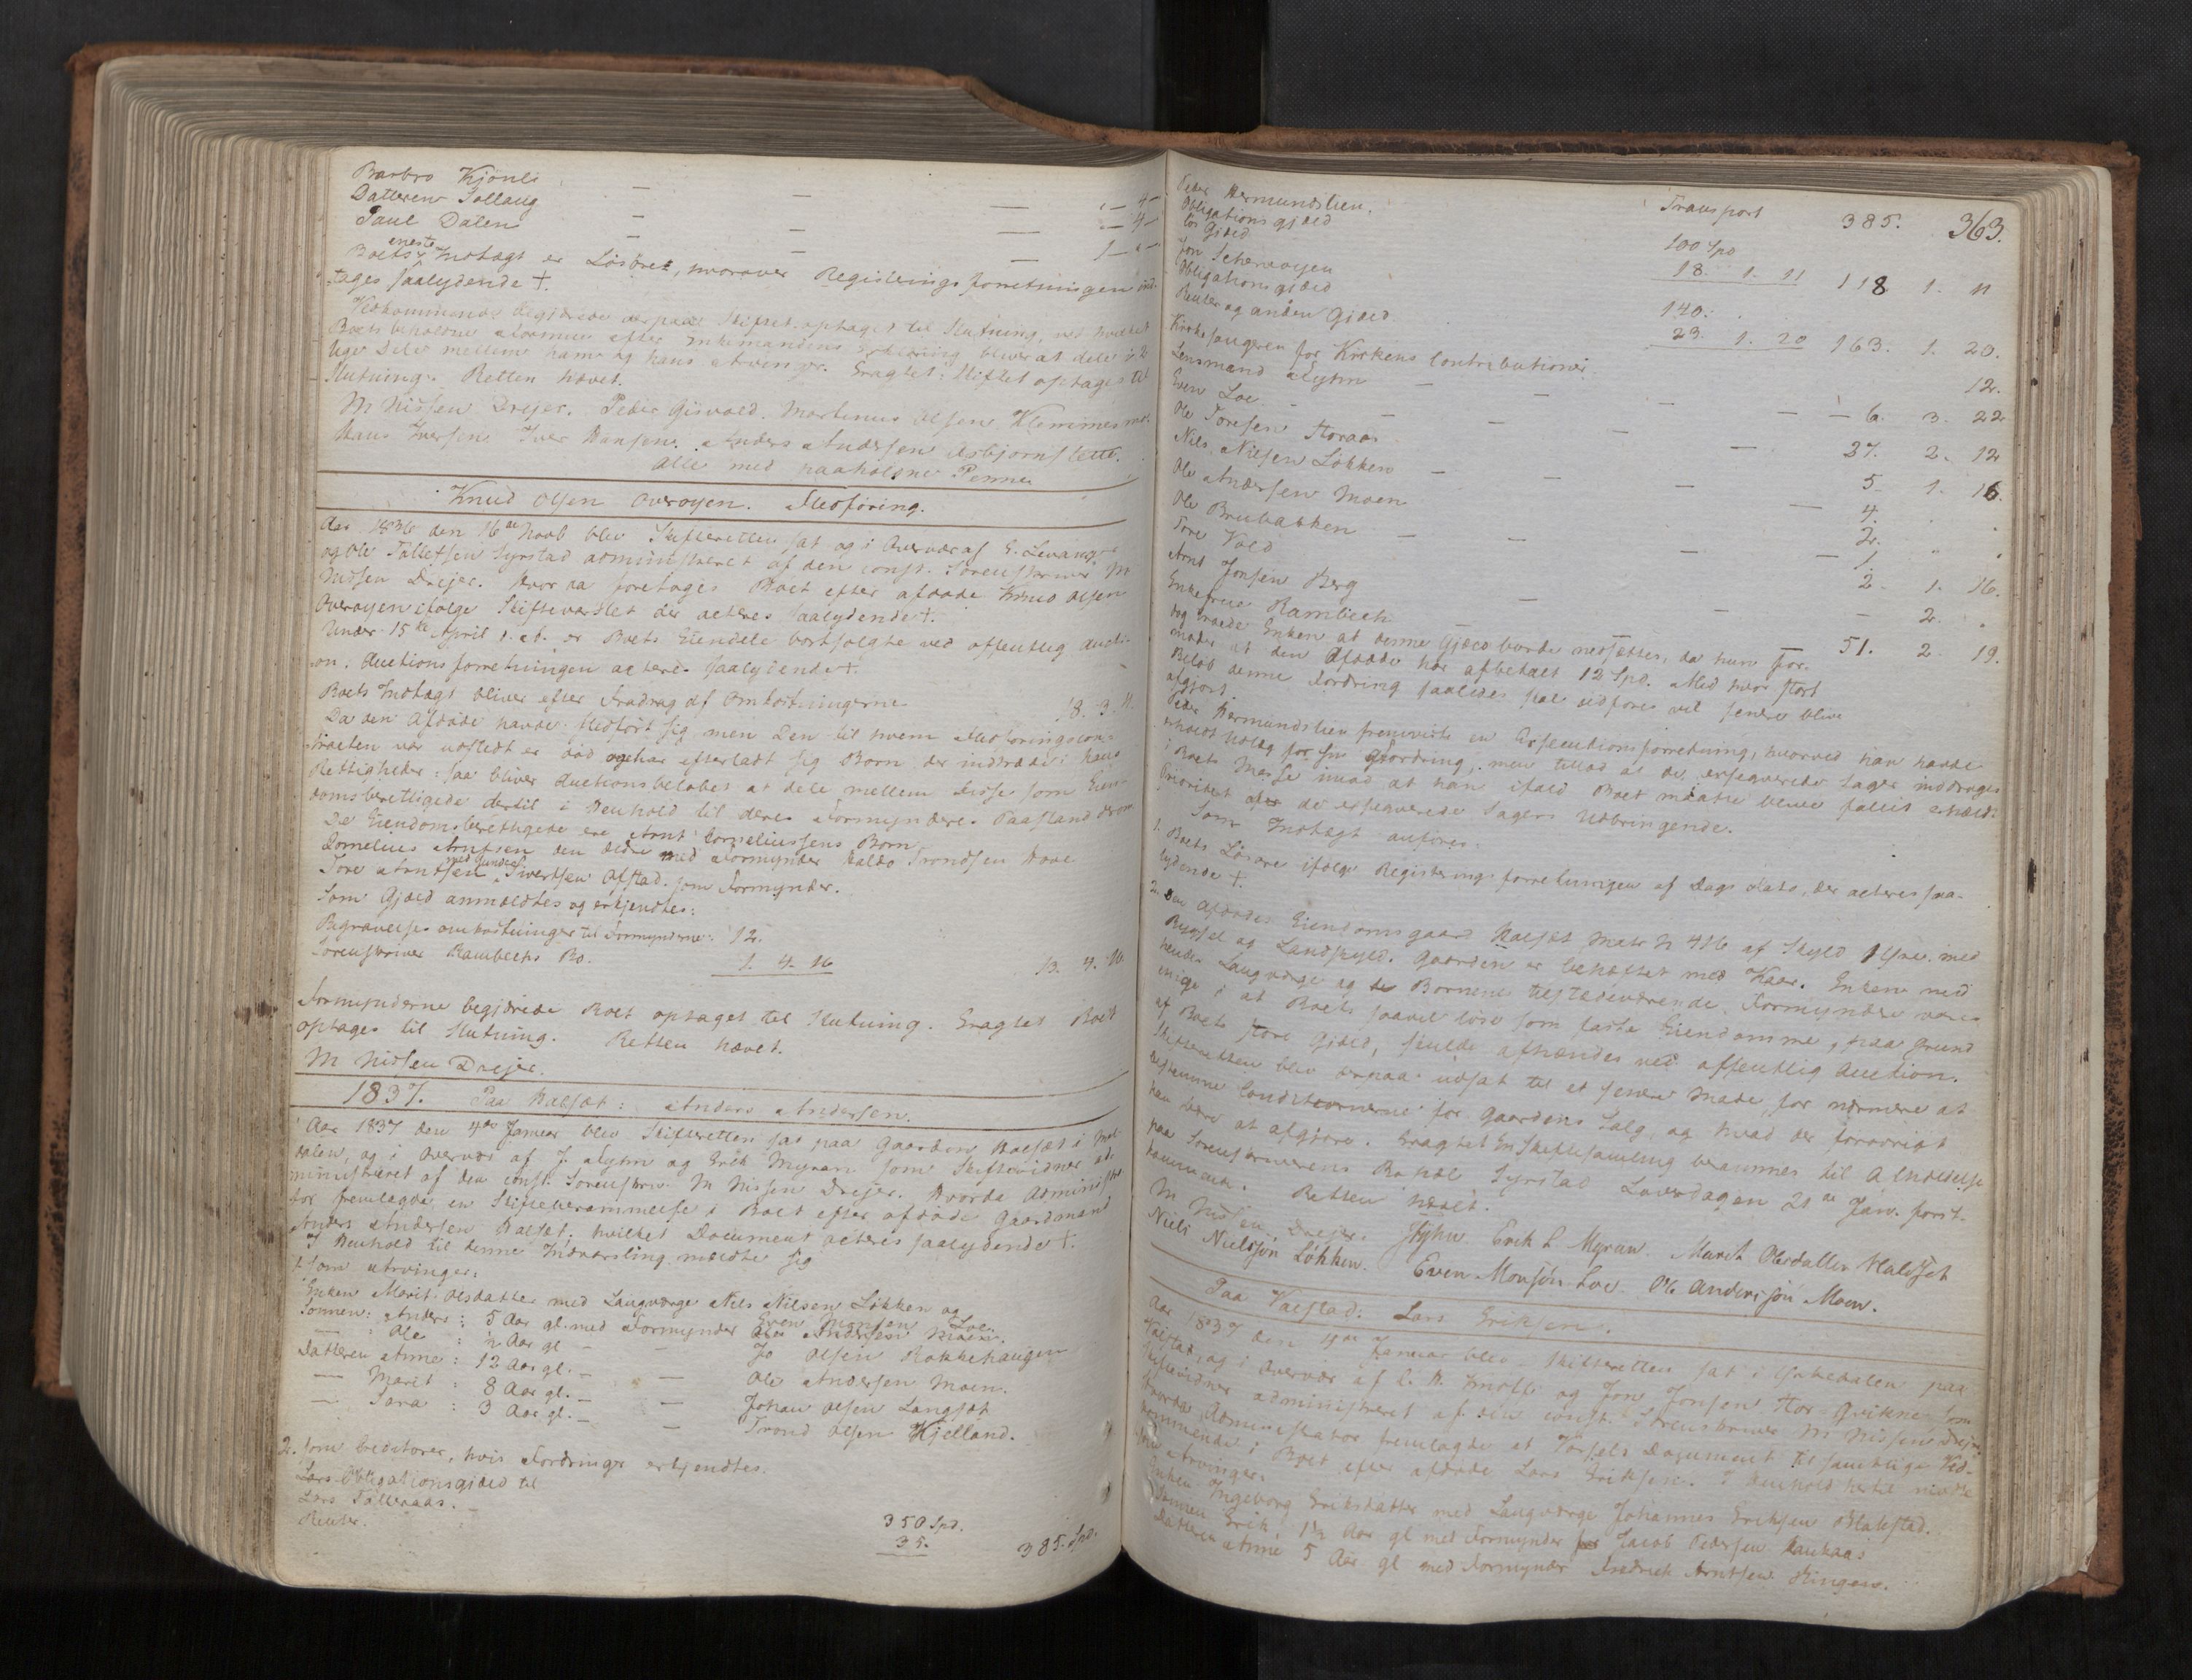 Barbro Kjönli — — — " — 4 —
Datteren Sollaug — — — " — 4 —
Paul Dalen — — — 1 — " —
Boets eneste Indtægt er Lösöret, hvorover Registeringsforretningen ind-
tages saalydende +.
Vedkommende begjærede derpaa Skiftet optaget til Slutning, ved hvilket
Boets beholdne Formue efter Enkemandens Erklæring bliver at dele i 2
lige Dele mellem ham og hans Arvinger. Eragtet: Skiftet optages til
Slutning. Retten hævet.
M Nissen Drejer. Peder Gisvold. Martinus Olsen
Hans Iversen Iver Hansen. Anders Andersen Asbjornslette.
alle med paaholdne Penne
Knud Olsen Overöyen. Fledföring.
Aar 1836 den 16de Novb blev Skifteretten sat og i Overvær af E. Levang
og Ole Tollefsen Syrstad administreret af den const. Sorenskriver M
Nissen Drejer. Hvor da foretages Boet efter afdöde Knud Olsen
Overöyen ifölge Skiftevarslet der acteres saalydende +.
Under 15de April s. A. er Boets Eiendele bortsolgte ved offentlig Aucti-
on. Auctionsforretningen acteres saalydende +.
Boets Indtægt bliver efter Fradrag af Omkostningerne 18. 3. 11.
Da den Afdöde havde fledfört sig, men Den til hvem Fledföringscon-
tracten var udstedt er död og har efterladt sig Börn der indtræde i hans
Rettigheder: saa bliver Auctionsbelöbet at dele mellem disse som Eien-
domsberettigede dertil i Henhold til deres Formynderes Paastand derom
De Eiendomsberettigede ere Arnt Corneliussens Börn
Cornelius Arntsen den ældre med Formynder Haldo Trondsen Hove
Tore Arntsen med Gunder Sivertsen Ofstad som Formynder.
Som Gjæld anmeldtes og erkjendtes:
Begravelsesomkostninger til Formynderne: 12.
Sorenskriver Rambechs Bo. 1. 4. 16 13. 4. 16
Formynderne begjærede Boet optaget til Slutning. Eragtet Boet
optages til Slutning. Retten hævet.
M Nissen Drejer.
1837. Paa Halsæt: Anders Andersen.
Aar 1837 den 4de Januar blev Skifteretten sat paa Gaarden Halsæt i Mel-
dalen, og i Overvær af J. Lyhm og Erik Myran som Skiftevidner ad-
ministreret af den const. Sorenskriv. M Nissen Drejer. Hvorda Administra
tor fremlagde en Skifteberammelse i Boet efter afdöde Gaardmand
Anders Andersen Halsæt, hvilket Document acteres saalydende +.
I Henhold til denne Indvarsling meldte sig
1. som Arvinger:
Enken Marit Olsdatter med Laugværge Nils Nilsen Lökken og
Sönnen: Anders: 5 Aar gl. med Formynder Even Monsen Loe.
— Ole : ½ Aar gl — — Jo Olsen Rokkehaugen
Datteren Anne : 12 Aar gl. — — Ole Andersen Moen.
— Marit : 8 Aar gl. — — Johan Olsen Langsæt
— Sara : 3 Aar gl. — — Trond Olsen Kjelland.
2. som Creditorer, hvis Fordringer erkjendtes.
Obligationsgjæld til
Lars Tolleraas. — 350 Spd.
Renter. 35. 385. Spd.
363.
Transport 385.
Peder Hermundslien.
Obligationsgjæld 100 Spd
lös Gjæld 18. 1. 11 118 1. 11
Jon Schervöyen
Obligationsgjæld 140.
Renter og anden Gjæld 23. 1. 20 163. 1. 20.
Kirkesangeren for Kirkens Contributioner 12.
Lensmand Lyhm — — — — 6. 3. 22
Even Loe — — — 27. 2. 12
Ole Toresen Storaas — — 5 1. 16.
Nils Nilsen Lökken — — — 4. " "
Ole Andersen Moen 2. " "
Ole Brubakken — — — 1.
Tore Vold 2. 1. 16.
Arnt Jonsen Berg — — — 2. "
Enkefrue Rambech — 51. 2. 19.
dog troede Enken at denne Gjæld burde nedsættes, da hun for-
moder at den Afdöde har afbetalt 12 Spd. Med hvor stort
Belöb denne Fordring saaledes skal udföres vil senere blive
afgjort.
Peder Hermundslien fremviste en Executionsforretning, hvorved han havde
erholdt Udlæg for sin Fordring, men tillod at de exseqverede Sager inddroges
i Boets Masse imod at han ifald Boet maatte blive fallit erholdt
Prioritet efter de exseqverede Sagers Udbringende.
Som Indtægt anföres:
1. Boets Lösöre ifölge Registeringsforretningen af Dags Dato, der acteres saa-
lydende +.
2. Den Afdödes Eiendomsgaard Halsæt Matr N 416 af Skyld 1 Öre. med
Bygsel og Landskyld. Gaarden er behæftet med Kaar. Enken med
hendes Laugværge og Börnene tilstedeværende Formyndere vare
enige i at Boets saavel löse som faste Eiendomme, paa Grund
af Boets store Gjæld, skulde afhændes ved offentlig Auction.
Skifteretten blev derpaa udsat til et senere Möde for nærmere at
bestemme Conditionerne for Gaardens Salg, og hvad der forövrigt
kan være at afgjöre. Eragtet En Skiftesamling berammes til Afholdelse
paa Sorenskriverens Bopæl Syrstad Löverdagen 21de Jan. först-
kommende. Retten hævet.
M Nissen Drejer. JLyhm. Erik L Myran. Marit Olsdatter Halsset
Niels Nielssön Løkken. Even Monsøn Loe. Ole Anderssøn Moen.
Paa Valstad: Lars Eriksen.
Aar 1837 den 4de Januar blev Skifteretten sat i Örkedalen paa
Valstad, og i Overvær af C. H. Knoff og Jon Jonsen Hor Qvikne som
Skiftevidner administreret af den const. Sorenskriver M Nissen Drejer
Hvorda Administrator fremlagde et Varsels Document til samtlige Ved-
kommende i Boet efter afdöde Lars Eriksen. I Henhold hertil mödte
som Arvinger.
Enken Ingeborg Eriksdatter med Laugværge Johannes Eriksen Blakstad.
Sönnen Erik: 1½ Aar gl med Formynder Jacob Pedersen
Datteren Anne 5 Aar gl med Formynder Fredrick Arntsen Ringen.